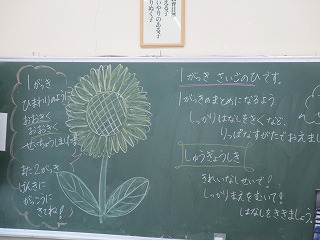 1がっき
ひまわりのように
おおきく
おおきく
せいちょうしました
また2がっき
げんきに
がっこうに
きてね!
1がっき さいごのひです。
1がっきのまとめになるよう
しっかりはなしをきくなど、
りっぱなすがたでおえましょう
しゅうぎょうしき
きれいなしせいで!
しっかりまえをむいて!
はなしをききましょう。